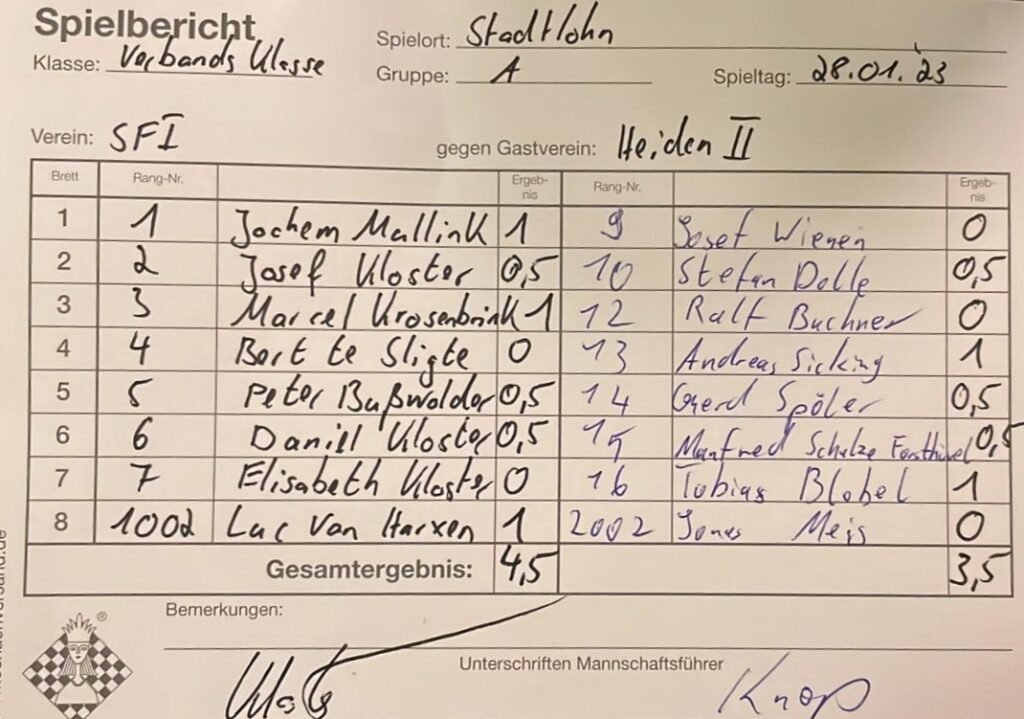 Spielbericht
Spielort: Stadtlohn
Klasse: Verbands Klasse
Gruppe: A
Spieltag: 28.01.23
Verein: SFI
gegen Gastverein: Heiden II
Brett Rang-Nr. Ergeb-nis Rang-Nr. Ergeb-nis
1 1 Jochem Mallink 1 9 Josef Wienen 0
2 2 Josef Kloster 0,5 10 Stefan Dolle 0,5
3 3 Marcel Krosenbrink 1 12 Ralf Buchner 0
4 4 Bert te Sligte 0 13 Andreas Sicking 1
5 5 Peter Bußwolder 0,5 14 Gerd Spöler 0,5
6 6 Daniel Kloster 0,5 15 Manfred Schulze 0,5
7 7 Elisabeth Kloster 0 16 Tobias Blobel 1
8 1002 Luc Van Harxen 1 2002 Jonas Meis 0
Gesamtergebnis: 4,5 3,5
Bemerkungen:
Unterschriften Mannschaftsführer
Knop